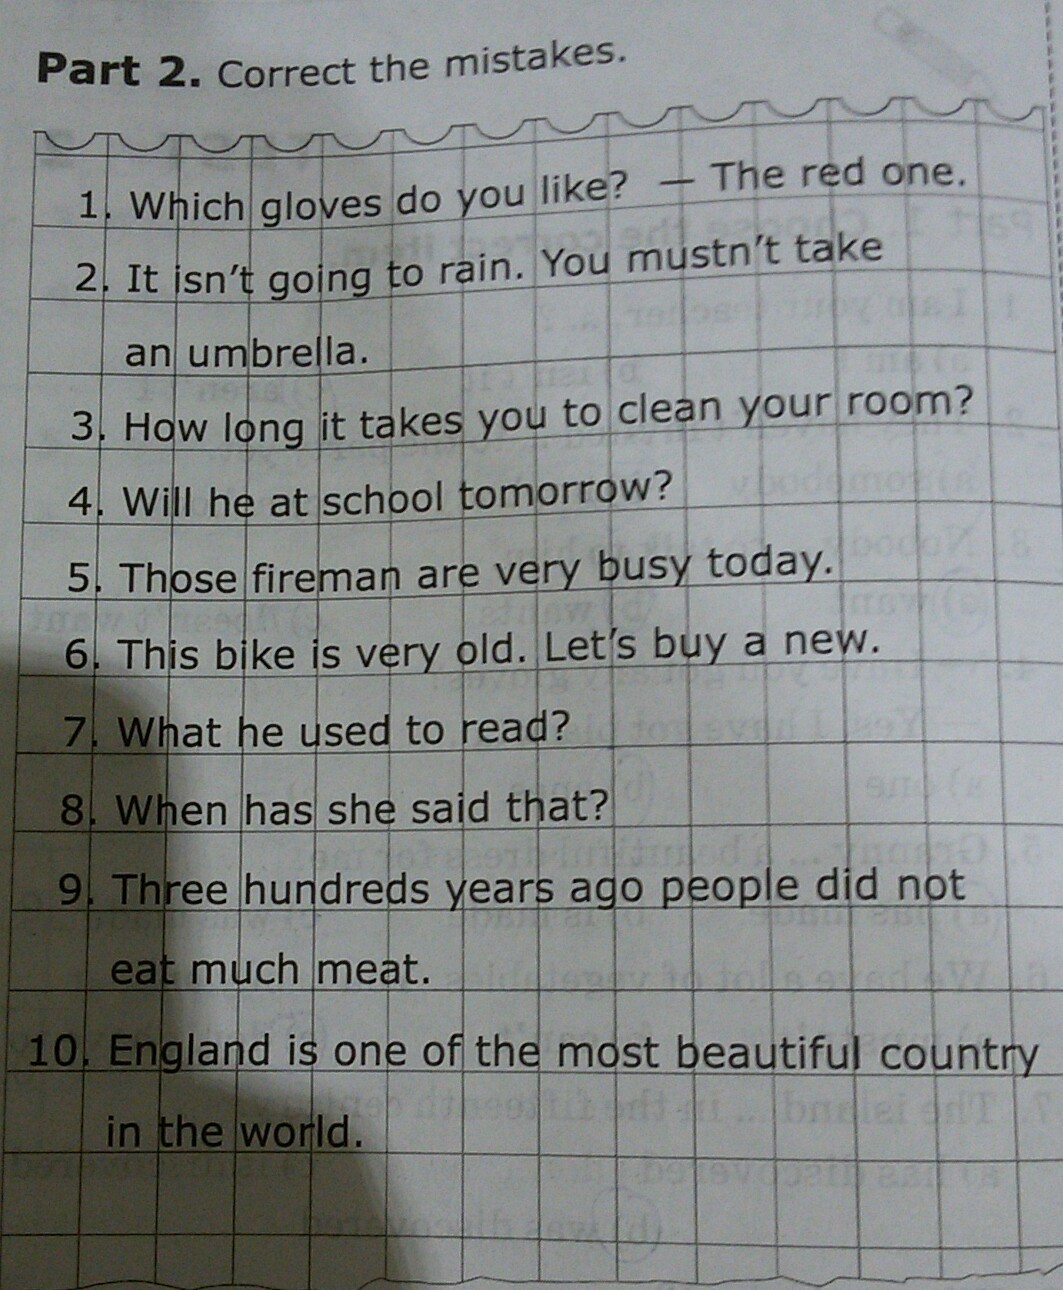 Part 2. Correct the mistakes.
1. Which gloves do you like? — The red one.
2. It isn't going to rain. You mustn't take
an umbrella.
3. How long it takes you to clean your room?
4. Will he at school tomorrow?
5. Those fireman are very busy today.
6. This bike is very old. Let's buy a new.
7. What he used to read?
8. When has she said that?
9. Three hundreds years ago people did not
eat much meat.
10. England is one of the most beautiful country
in the world.